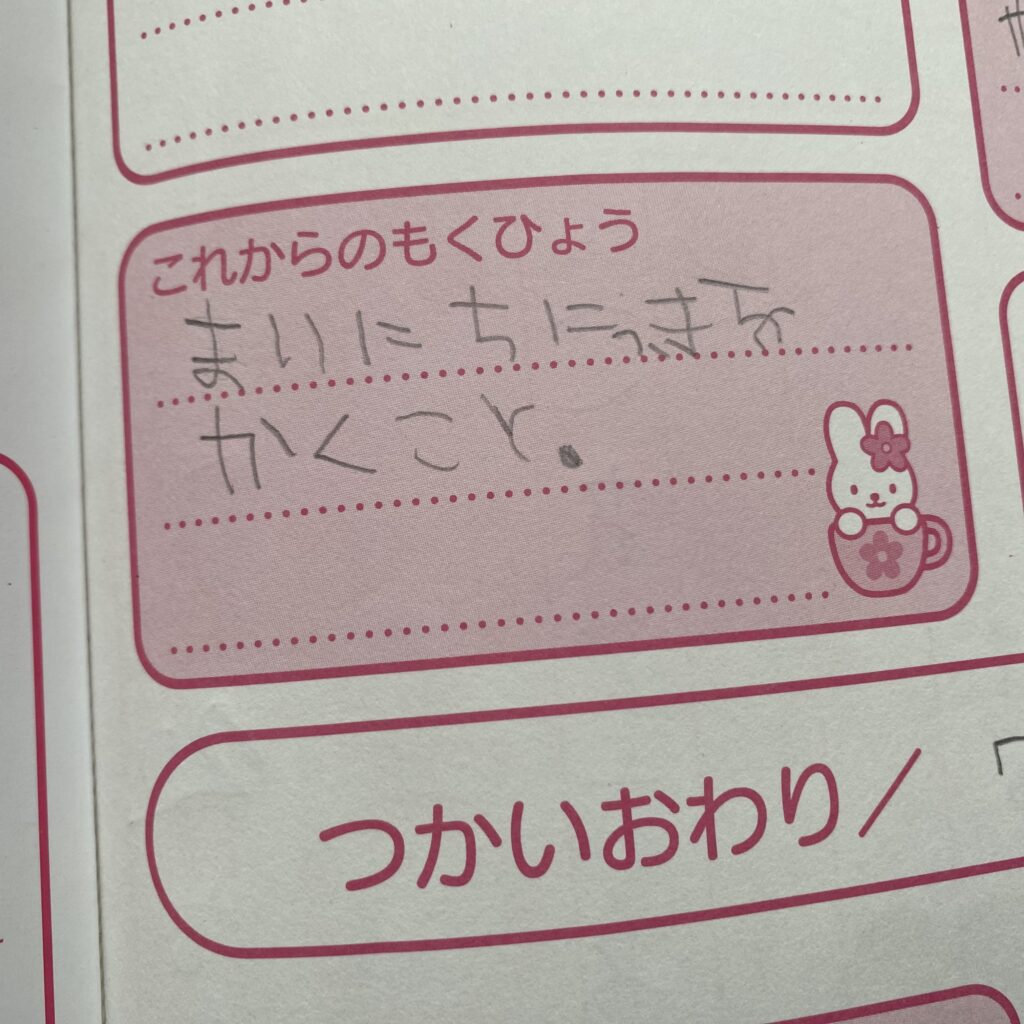 これからのもくひょう
まいにちにっきを
かくこと.
つかいおわり/